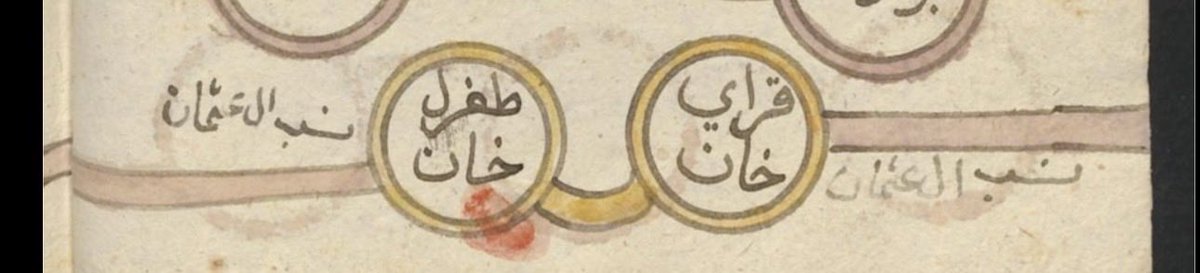 قراي
خان
نسب ال عثمان
طغرل
خان
نسب ال عثمان